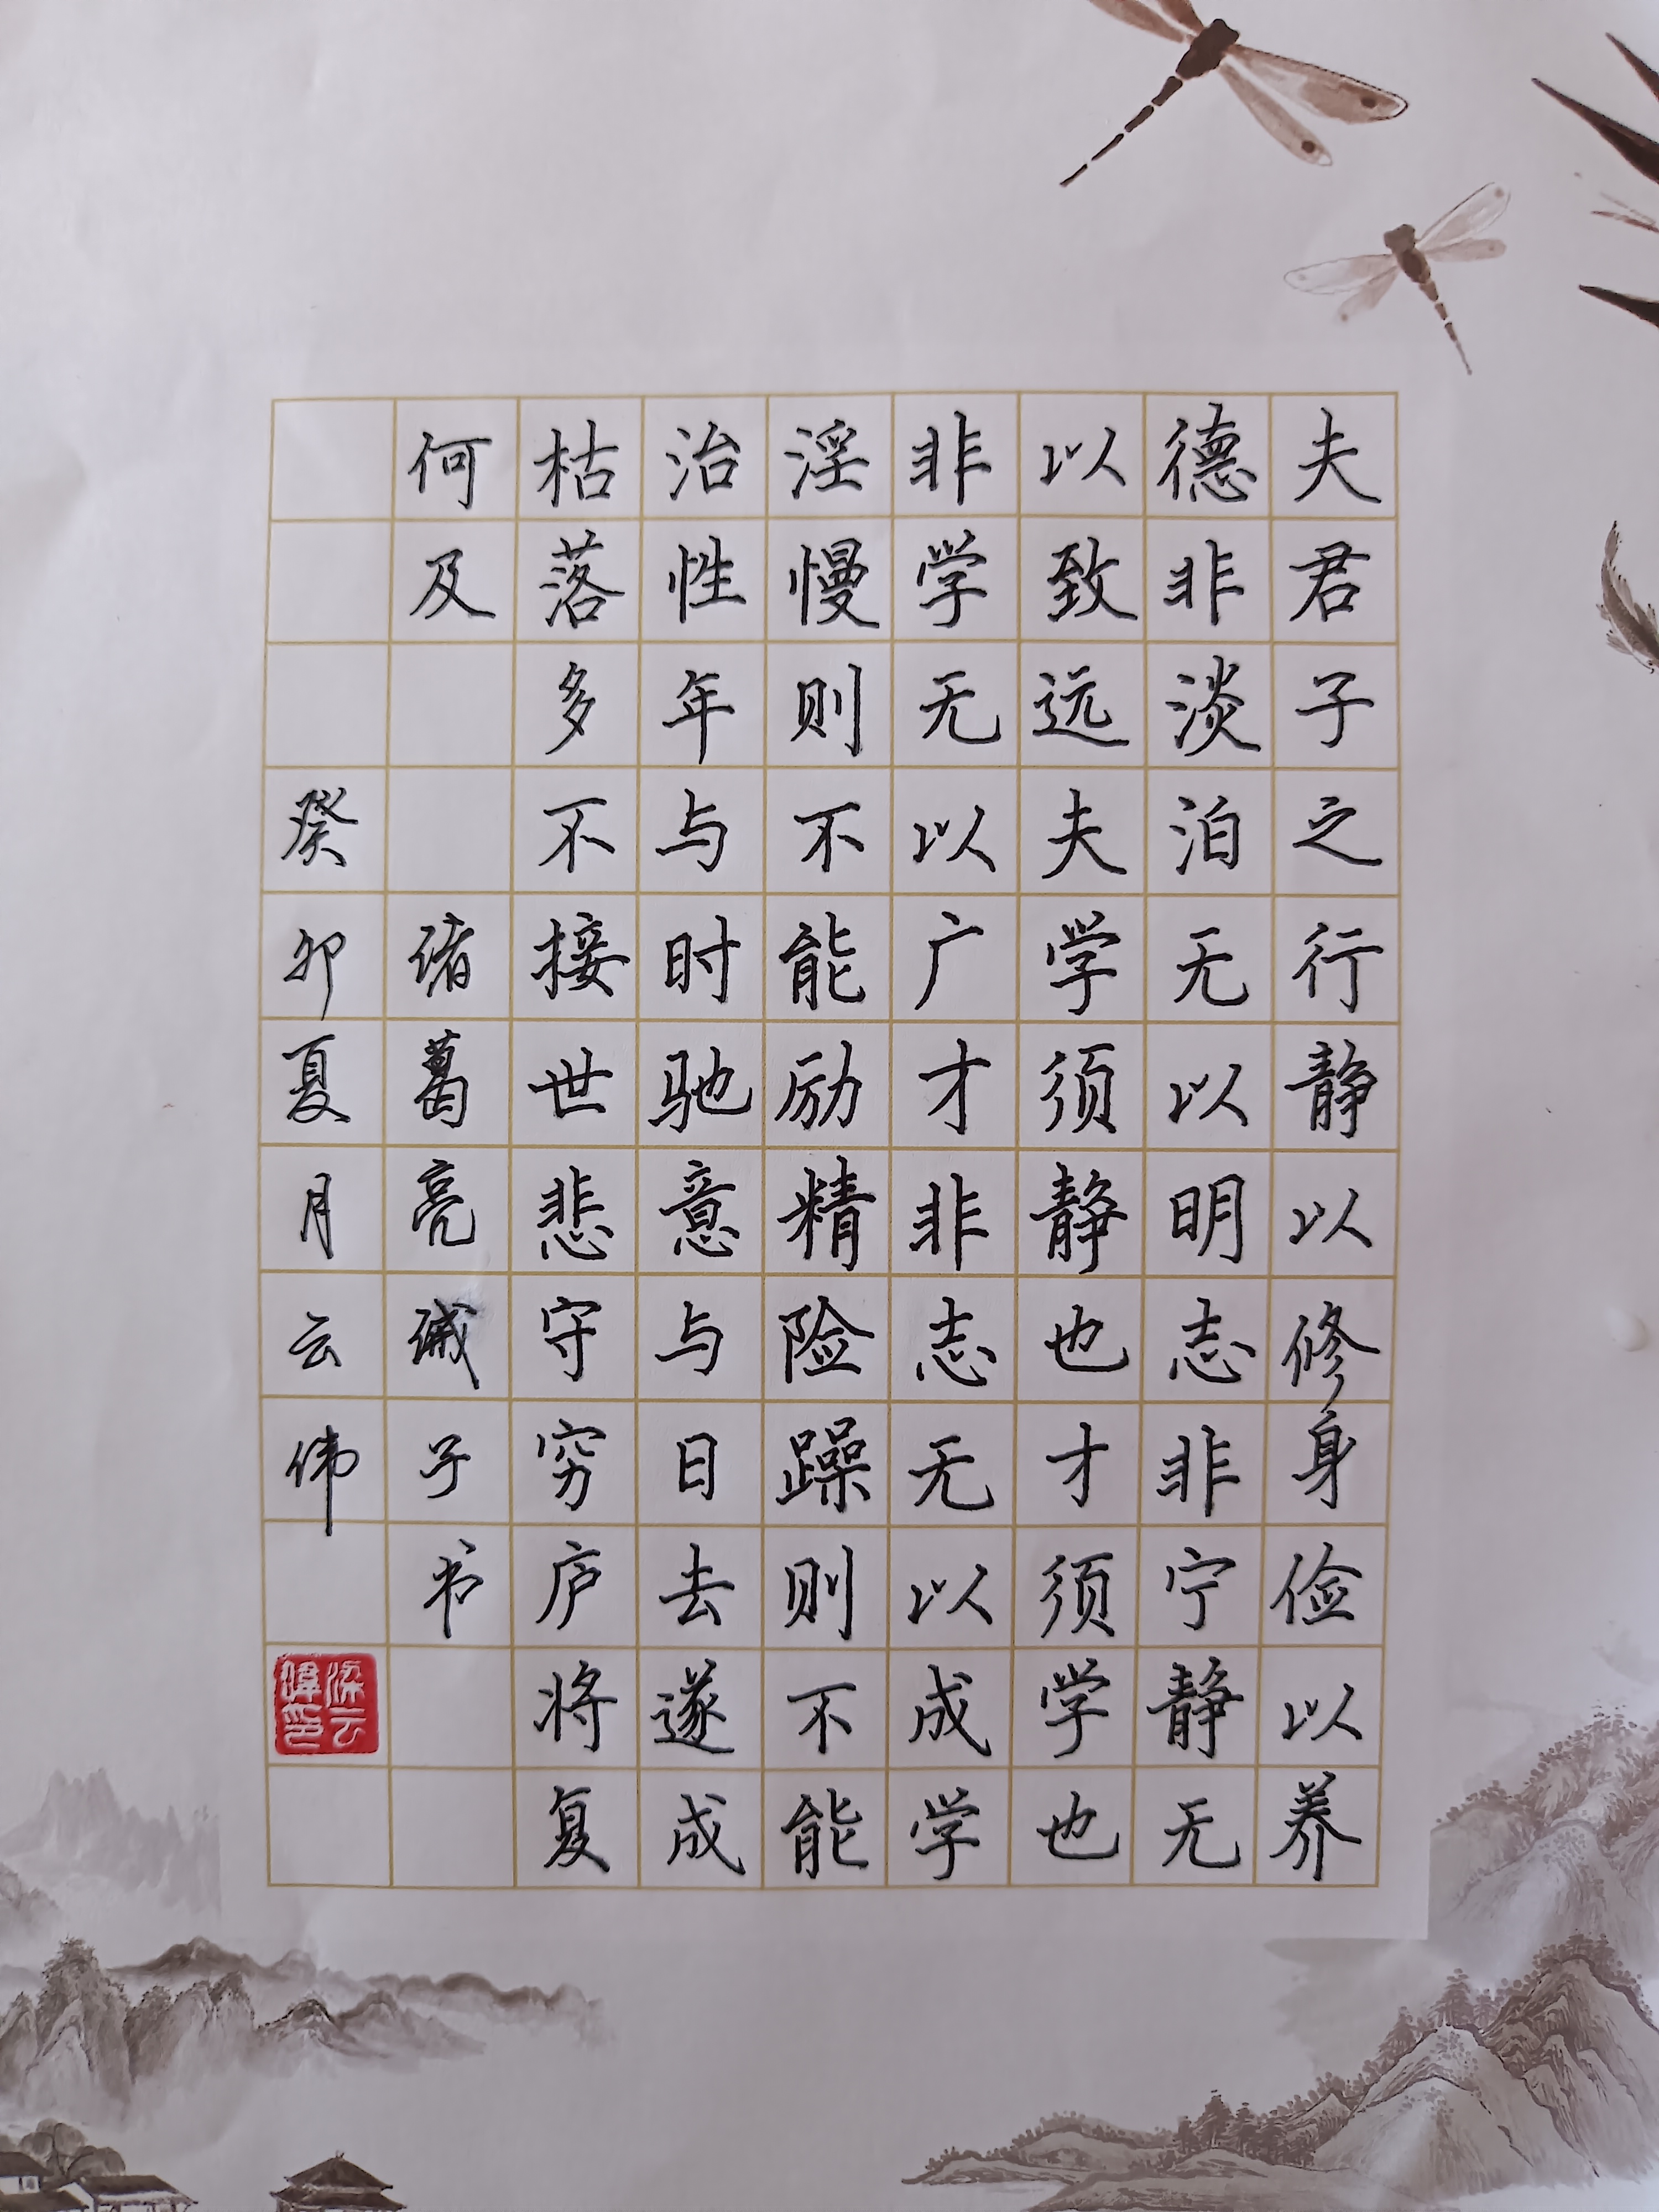 夫君子之行静以修身俭以养
德非淡泊无以明志非宁静无
以致远夫学须静也才须学也
非学无以广才非志无以成学
淫慢则不能励精险躁则不能
治性年与时驰意与日去遂成
枯落多不接世悲守穷庐将复
何及 诸葛亮诫子书
癸卯夏月云伟
梁云偉印